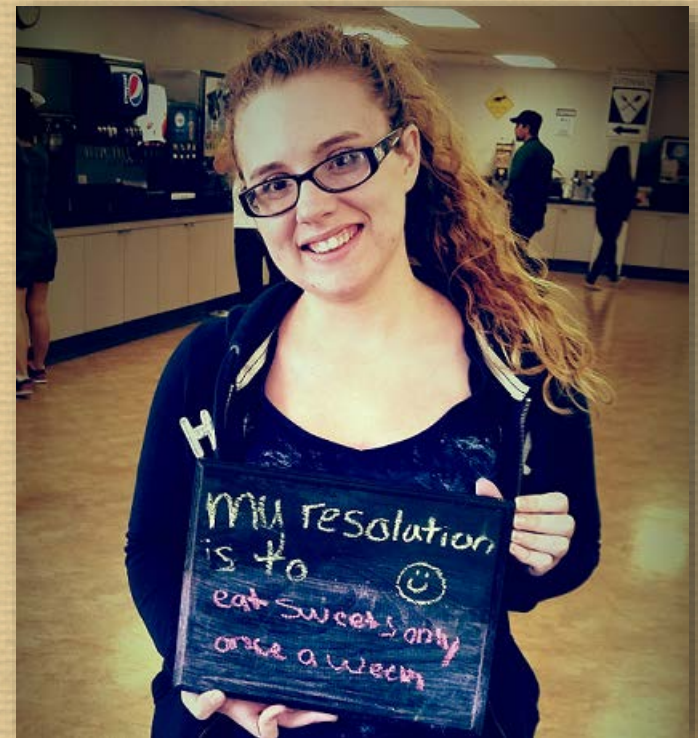 my resolution
is to
eat sweets only
once a week
H
pepsi